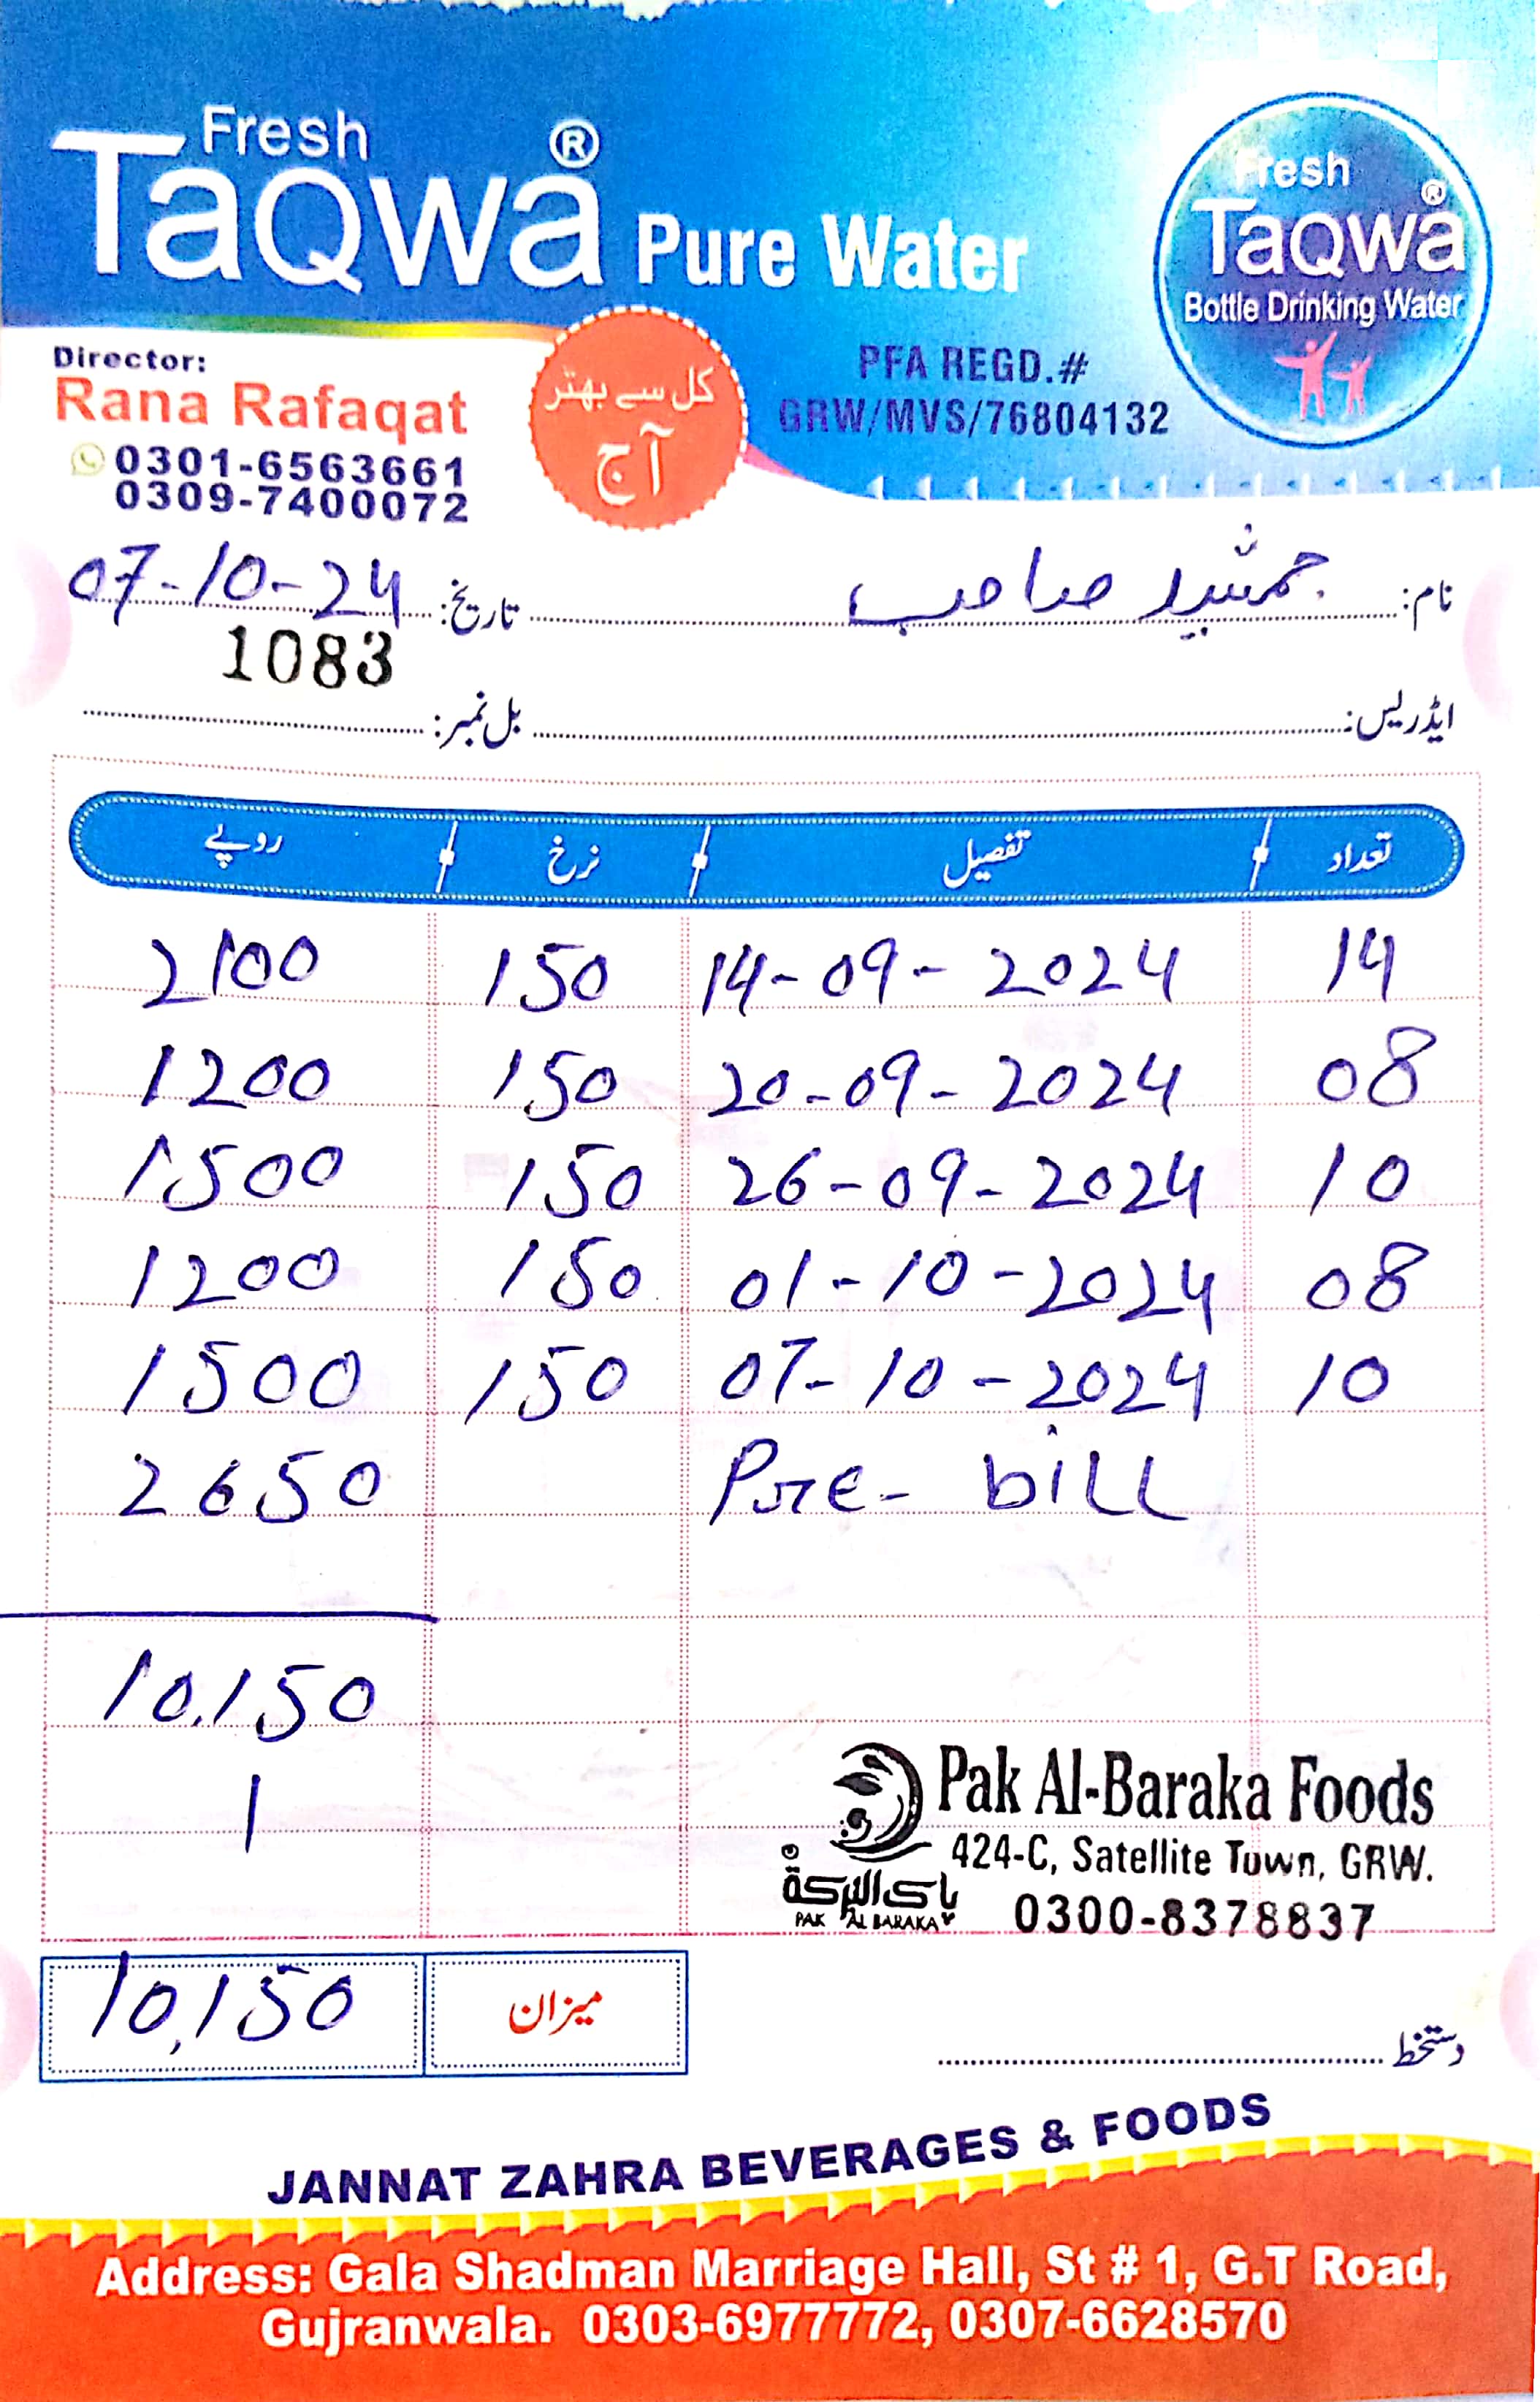 Fresh
TaQwa ® Pure Water
Fresh
TaQwa ®
Bottle Drinking Water
Director:
Rana Rafaqat
0301-6563661
0309-7400072
کل سے بہتر
آج
PFA REGD.#
GRW/MVS/76804132
نام: جمشید صاحب تاریخ: 07-10-24
1083
ایڈریس: بل نمبر:
تعداد تفصیل نرخ روپے
14 14-09-2024 150 2100
08 20-09-2024 150 1200
10 26-09-2024 150 1500
08 01-10-2024 150 1200
10 07-10-2024 150 1500
Pre-bill 2650
10,150
1
Pak Al-Baraka Foods
424-C, Satellite Town, GRW.
0300-8378837
پاک البركة
PAK AL BARAKA
میزان 10,150
دستخط
JANNAT ZAHRA BEVERAGES & FOODS
Address: Gala Shadman Marriage Hall, St # 1, G.T Road,
Gujranwala. 0303-6977772, 0307-6628570